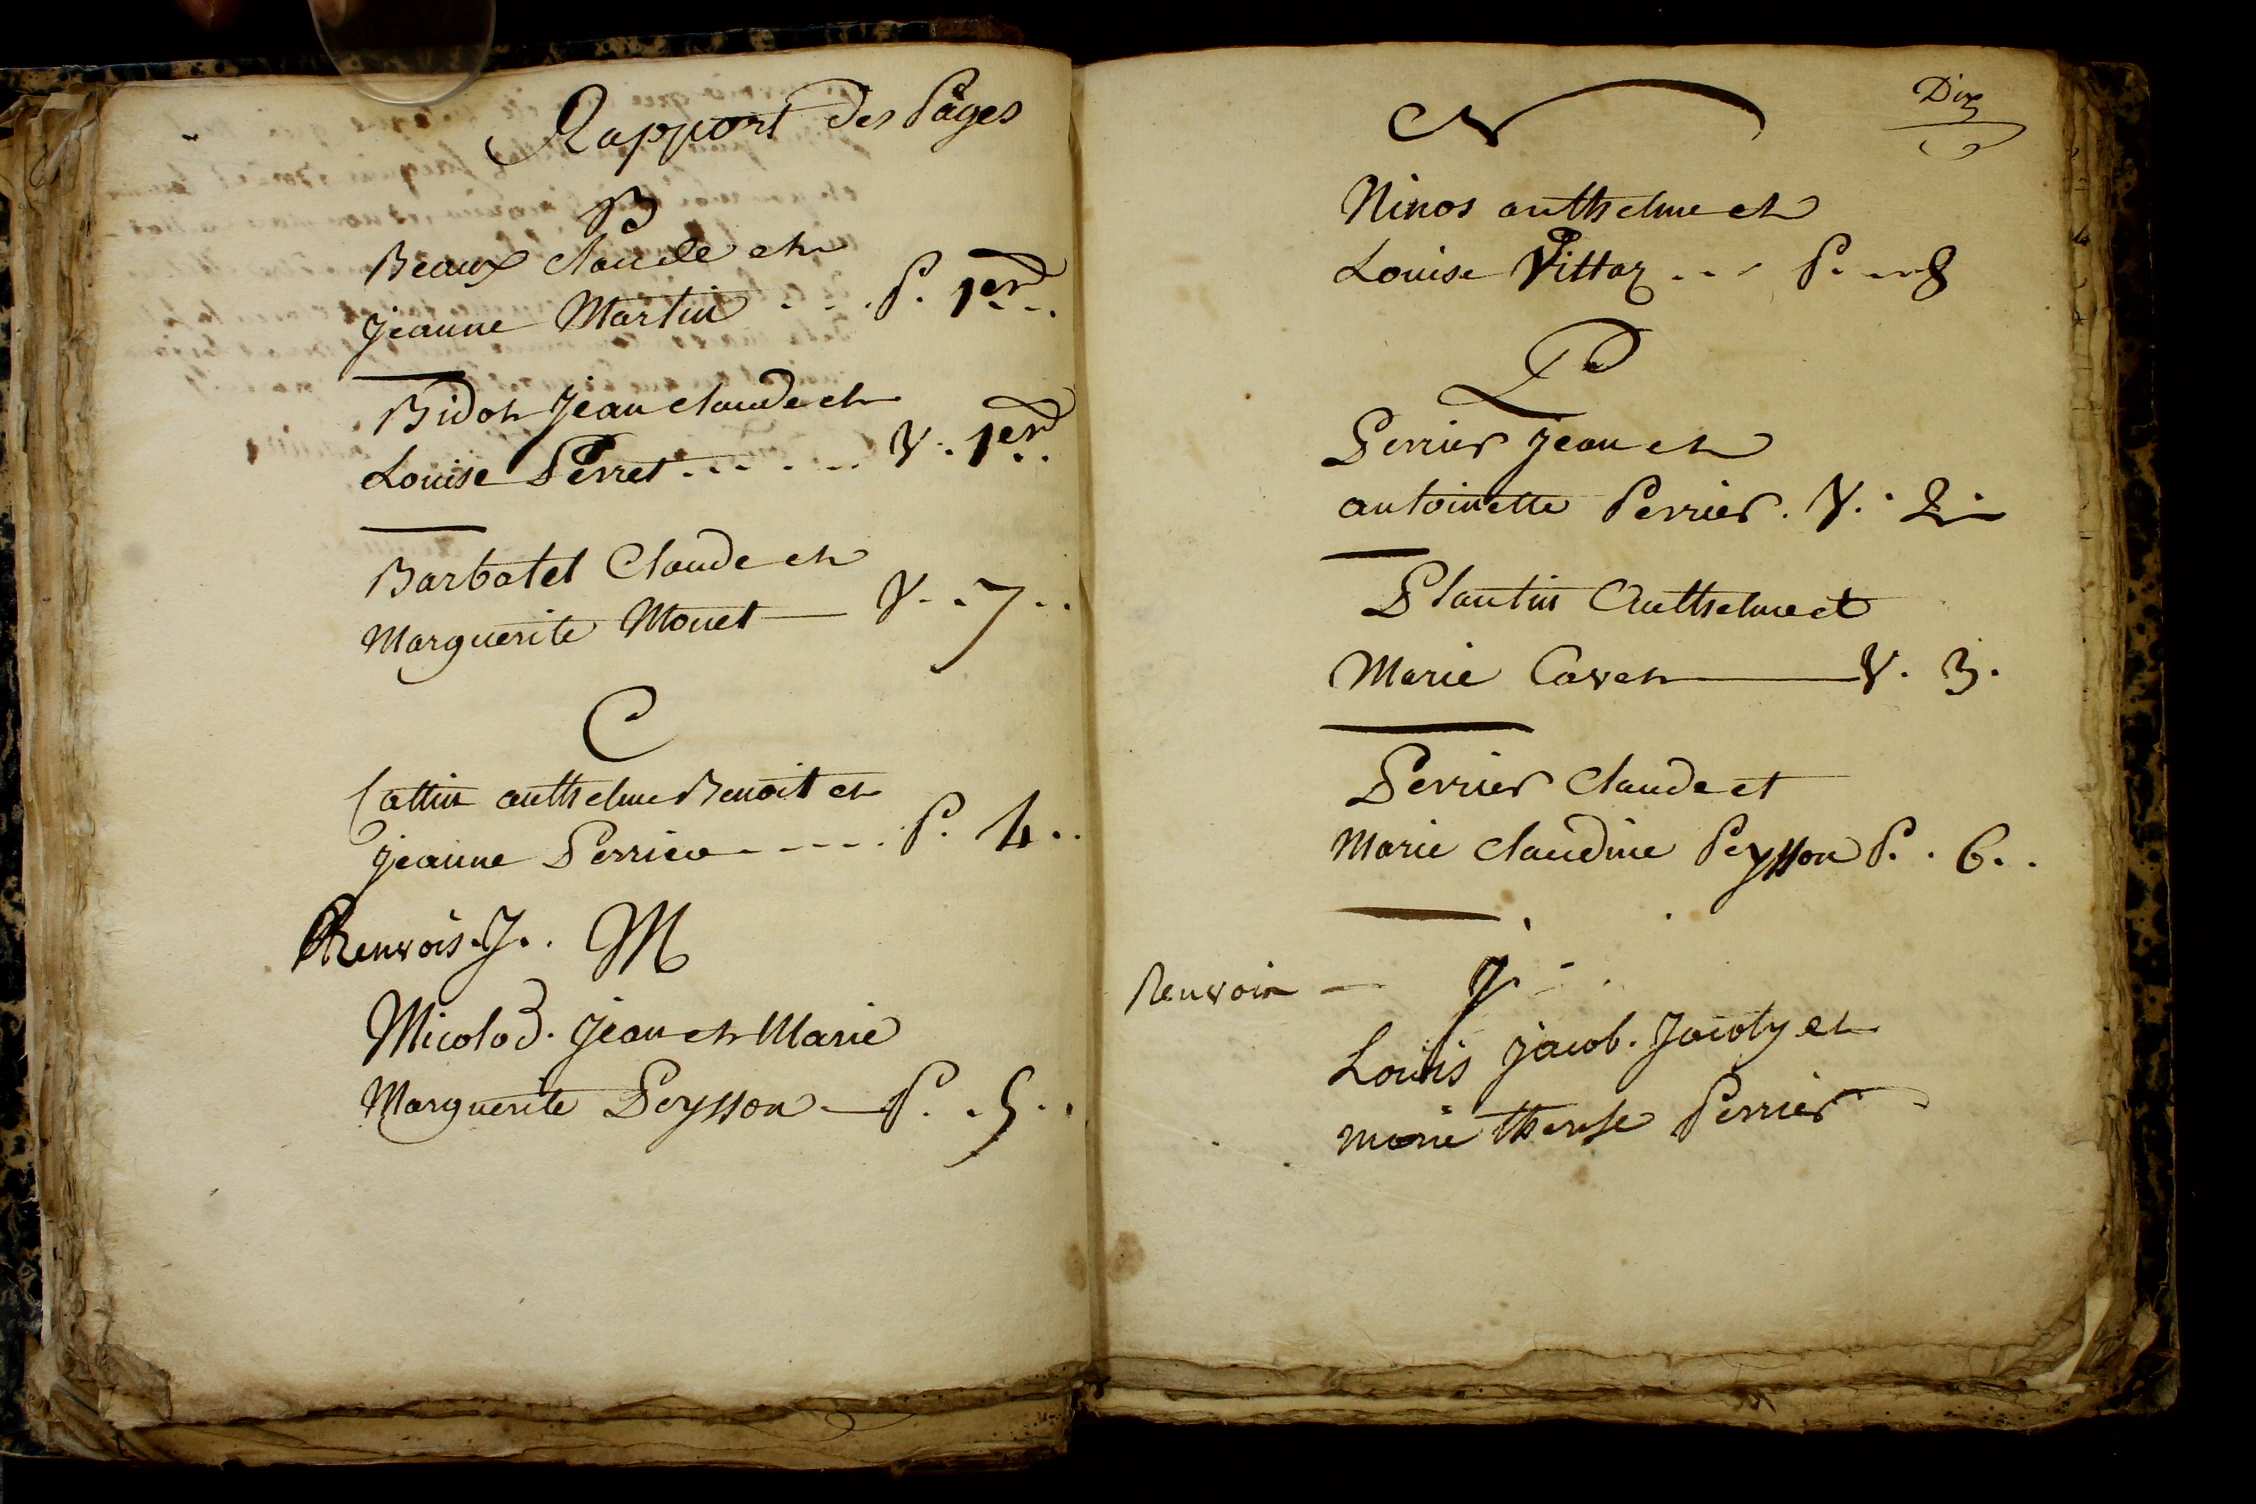 Rapport des Pages
B
Beaux Claude et
Jeanne Martin - - . P. 1er - .
Bidot Jean Claude et
Louise Perret - - - - - - V. 1er . .
Barbatel Claude et
Marguerite Monet — V. . 7 . .
C
Cattin anthelme Benoit et
Jeanne Perrier - - - - . P. 4 . .
Renvois. J. . M
Micolod. Jean et Marie
Marguerite Peysson — P. . 5 . .
Dix
N
Ninos anthelme et
Louise Vittoz . . - P. - 8
P
Perrier Jean et
antoinette Perrier. V. . 2 -
Plantin Anthelme et
Marie Cavet — V. 3.
Perrier Claude et
Marie Claudine Peysson P. . 6. .
Renvoi — J. -
Louis Jacob. Jacoty et
marie therese Perrier